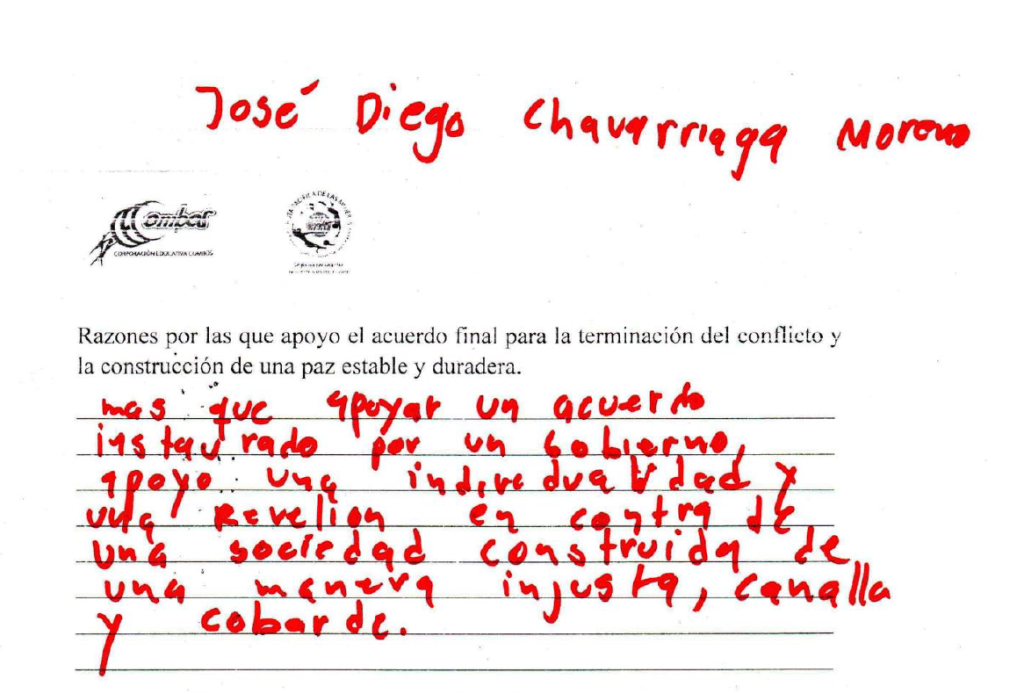 José Diego Chavarriaga Moreno
ombos
CORPORACIÓN EDUCATIVA COMBOS
Razones por las que apoyo el acuerdo final para la terminación del conflicto y
la construcción de una paz estable y duradera.
mas que apoyar un acuerdo
instaurado por un Gobierno,
apoyo una individualidad y
una Revelion en contra de
una sociedad construida de
una manera injusta, canalla
y cobarde.